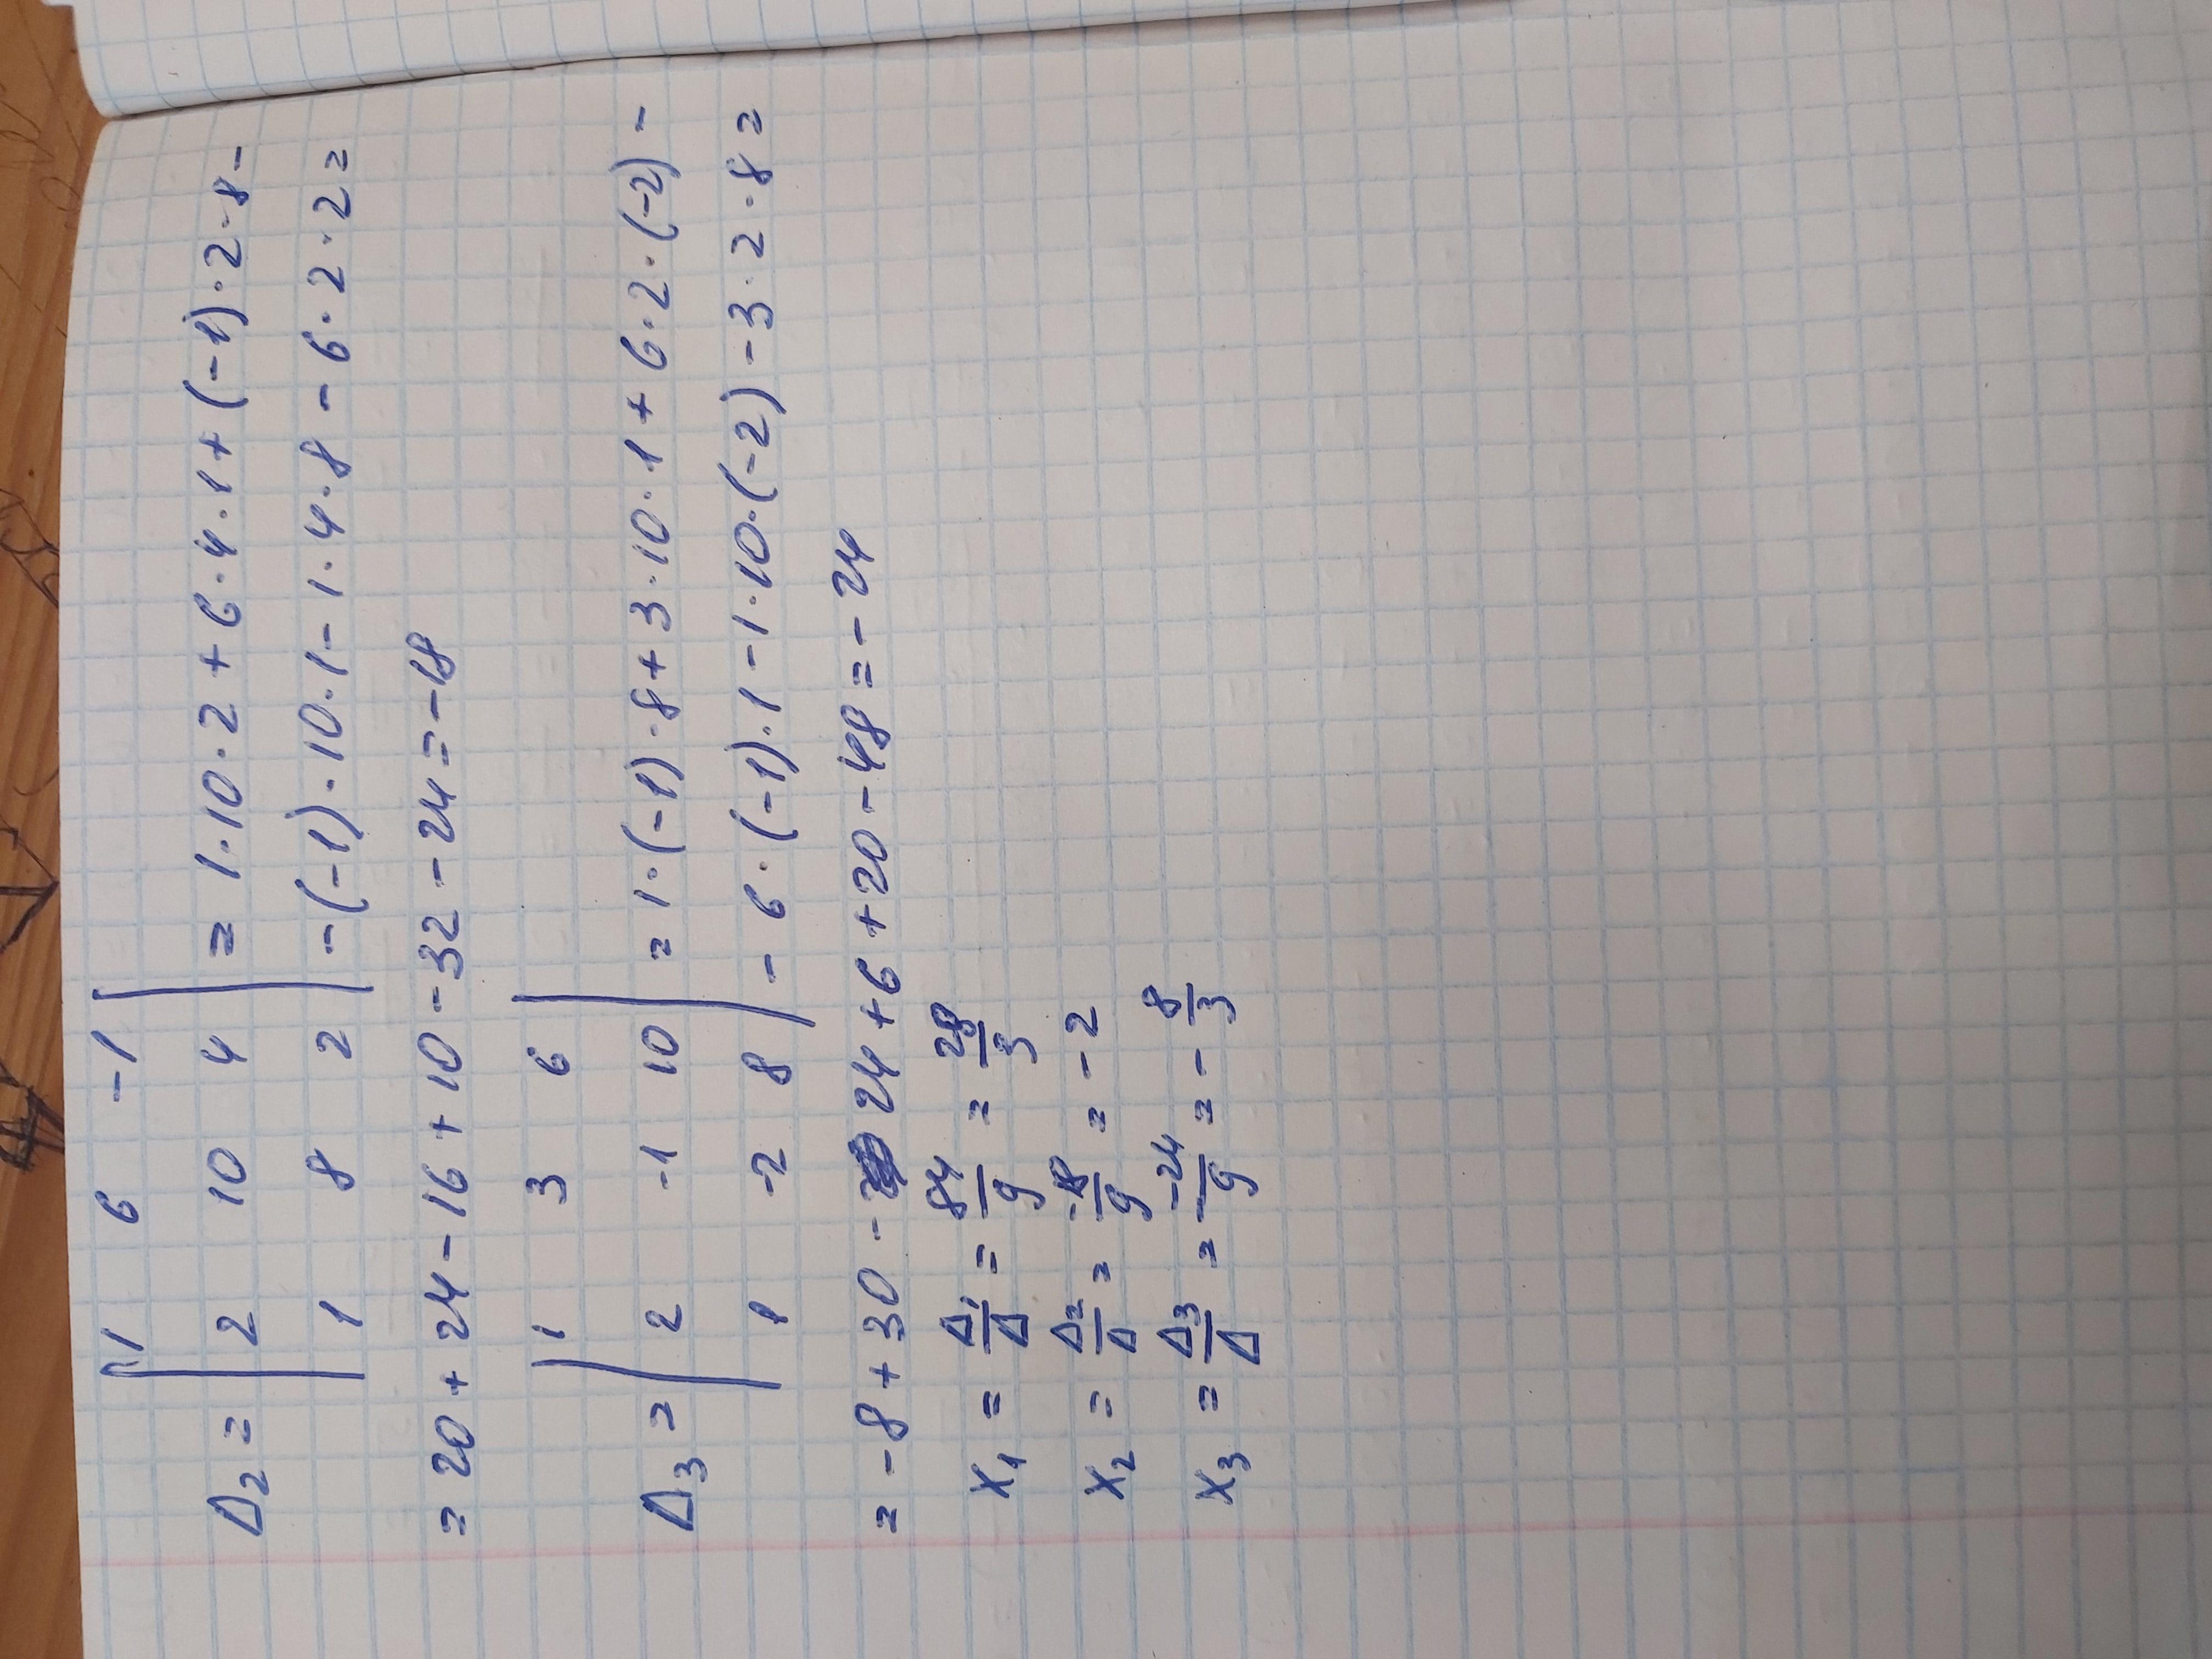 1 6 -1
Δ₂ = | 2 10 4 | = 1·10·2 + 6·4·1 + (-1)·2·8 -
1 8 2 - (-1)·10·1 - 1·4·8 - 6·2·2 =
= 20 + 24 - 16 + 10 - 32 - 24 = -18
1 3 6
Δ₃ = | 2 -1 10 | = 1·(-1)·8 + 3·10·1 + 6·2·(-2) -
1 -2 8 - 6·(-1)·1 - 1·10·(-2) - 3·2·8 =
= -8 + 30 - 24 + 6 + 20 - 48 = -24
x₁ = Δ₁/Δ = 84/9 = 28/3
x₂ = Δ₂/Δ = -18/9 = -2
x₃ = Δ₃/Δ = -24/9 = -8/3